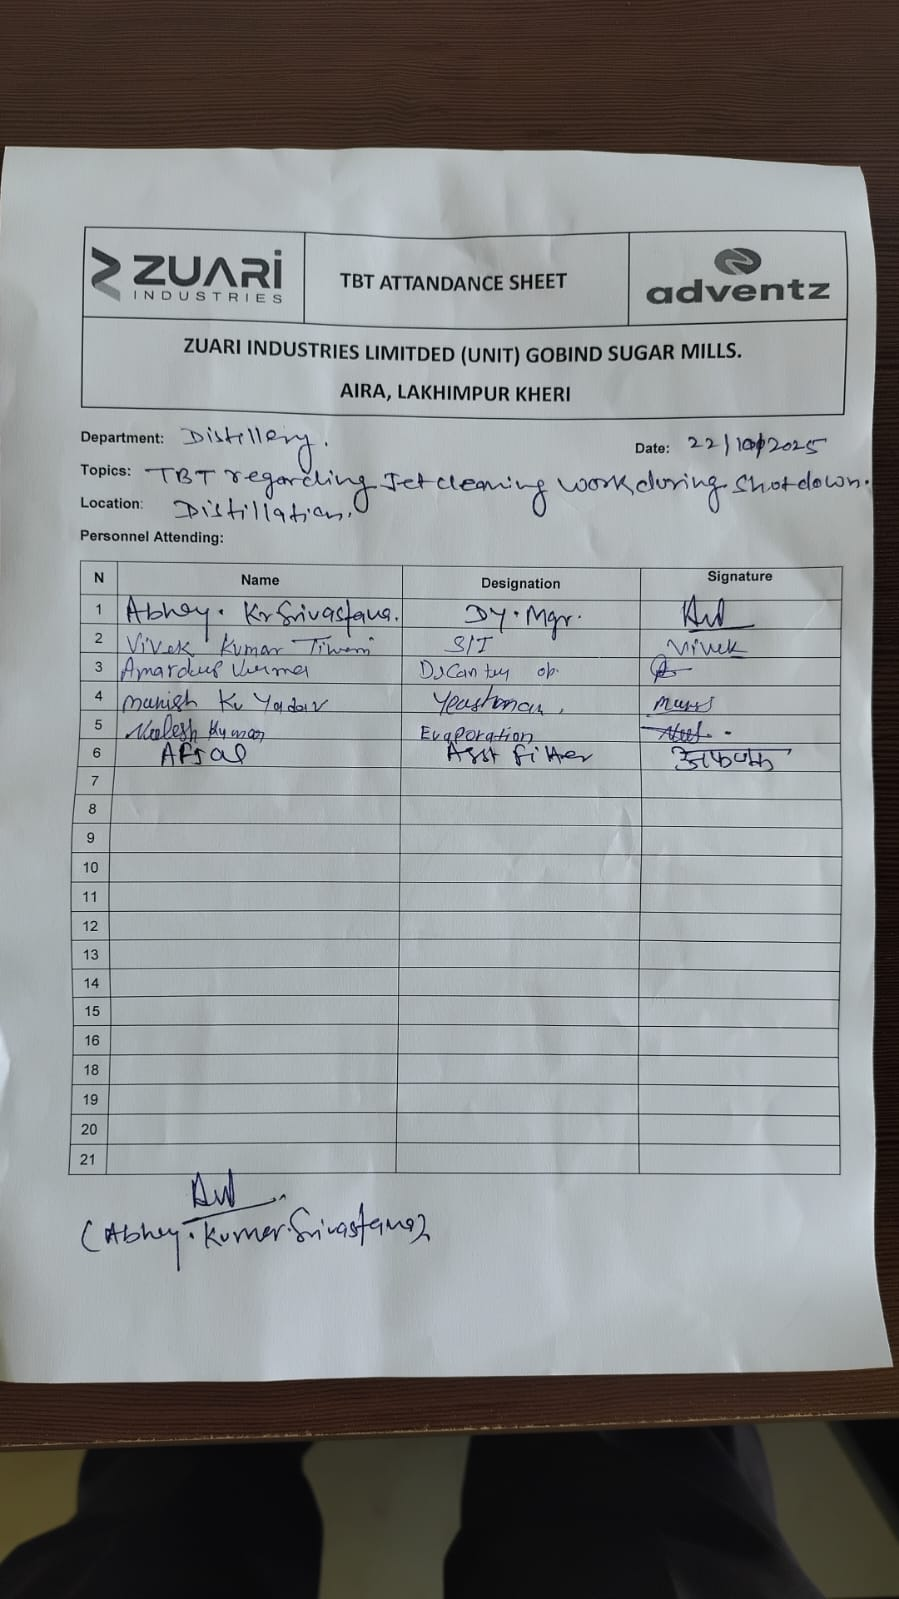 ZUARI
INDUSTRIES
TBT ATTANDANCE SHEET
adventz
ZUARI INDUSTRIES LIMITDED (UNIT) GOBIND SUGAR MILLS.
AIRA, LAKHIMPUR KHERI
Department: Distillery.
Date: 22/10/2025
Topics: TBT regarding Jet cleaning work during Shotdown.
Location: Distillation.
Personnel Attending:
N Name Designation Signature
1 Abhey. Kr Srivastava. DY. Mgr.
2 Vivek Kumar Tiwari S/I Vivek
3 Verma op.
4 Manish Kr Yadav Yeastman
5 Kumar Evaporation
6 Afjal Asst fitter
7
8
9
10
11
12
13
14
15
16
18
19
20
21
(Abhey. Kumar. Srivastava)